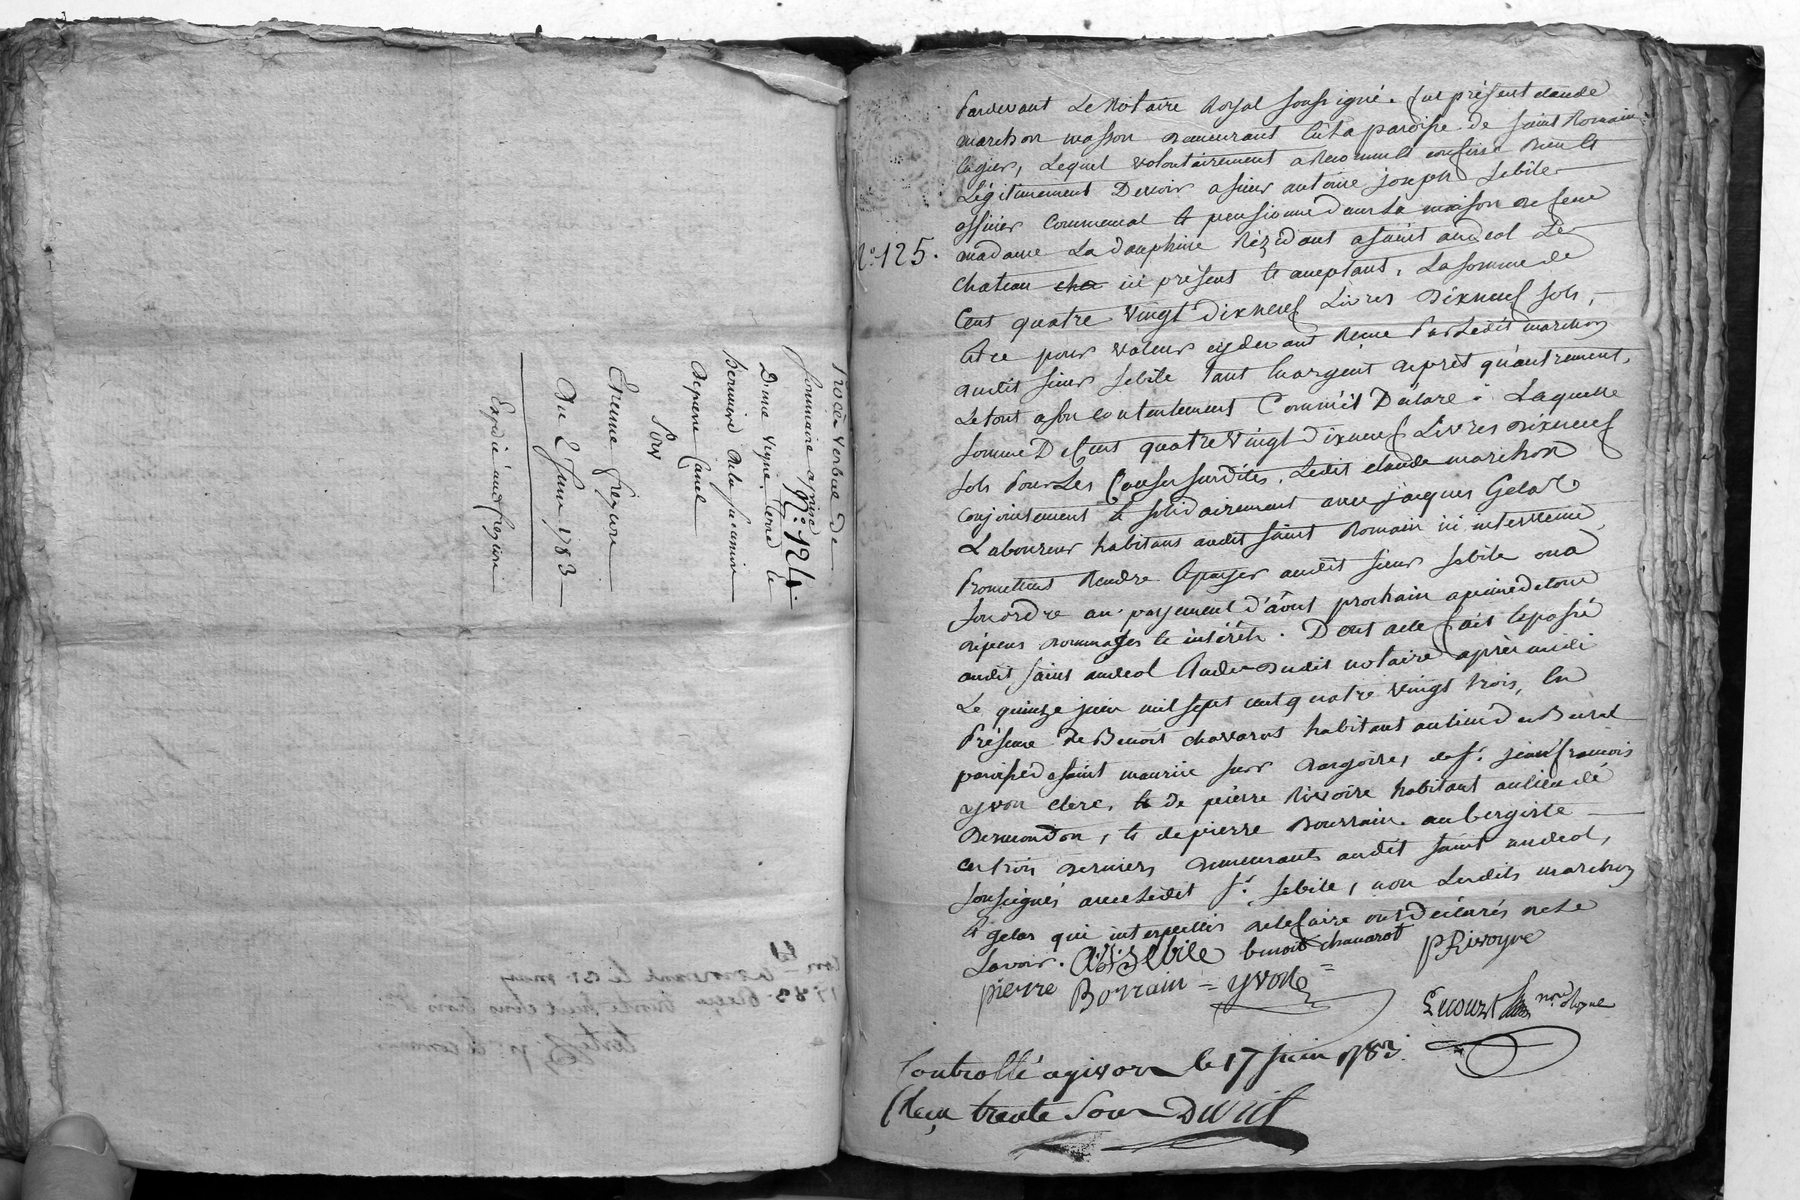 Procès verbal de
sommaire apprise
N.° 124.
D'une vigne, terre &
verniere de la succession
de pierre Canel
pour
Etienne freycon
Du 2 Juin 1783
Expédié audit freycon
N.° 125.
Pardevant Le Notaire Royal soussigné. fut présent claude
marchon masson demeurant En la paroisse de saint Romain
Legitimement Devoir a sieur antoine joseph Sebile
officier Commensal & pensionné dans La maison de feue
madame La dauphine Rézidant a saint andéol Le
Chateau cha ici présent & aceptant, La somme de
Cent quatre vingt dixneuf Livres dixneuf sols,
Et ce pour valeur cydevant Remi Par Ledit marchon
audit sieur Sebile tant En argent de prèt qu'autrement,
Le tout a son contentement Comm'il Déclare : Laquelle
somme De Cent quatre vingt dixneuf Livres dixneuf
sols Pour Les Causes susdites, Ledit claude marchon
conjointement & solidairement avec jacques Gelas
Laboureur habitant audit saint Romain ici intervenu,
Promettent Rendre & payer audit sieur Sebile ou a
son ordre au payement d'août prochain a peine de tous
dépens dommages & intérêts. Dont acte fait & passé
audit saint andeol Etude dudit notaire après midi
Le quinze juin mil sept cent quatre vingt trois, En
Présence de Benoît chavarot habitant au lieu du Burel
paroisse de saint maurice sur dargoire, de s.r jean françois
yvon clerc, & de pierre Rivoire habitant au lieu de
Bermondon, & de pierre Bourrain aubergiste
ces trois derniers demeurants audit saint andeol,
soussignés avec Ledit s.r Sebile, non Lesdits marchon
& gelas qui interpellés de le faire ont Déclarés ne le
savoir. A.J. Sebile benoit chauarot pRivoyre
pierre Borrain = yvon =
not.re Royal
Controllé a givors le 17 Juin 1783.
Reçu trente sous